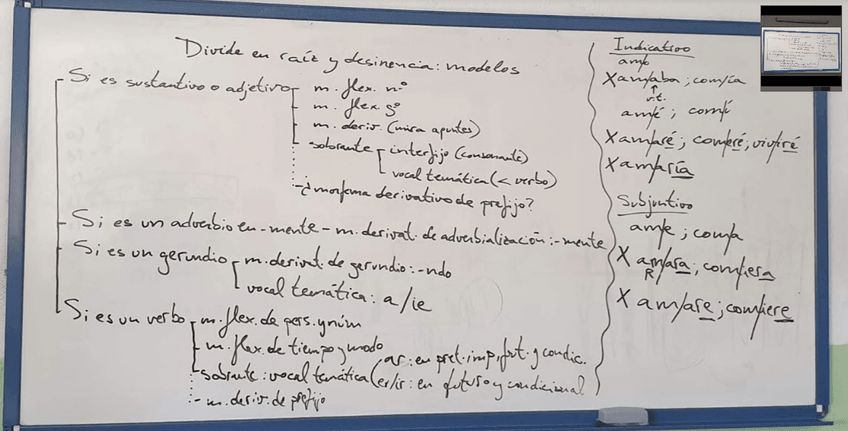 Divide en raíz y desinencia: modelos
Si es sustantivo o adjetivo
m. flex. nº
m. flex. gº
m. deriv. (mira apuntes)
sobrante
interfijo (consonante)
vocal temática (< verbo)
¿morfema derivativo de prefijo?
Si es un adverbio en -mente - m. derivat. de adverbialización: -mente
Si es un gerundio
m. derivat. de gerundio: -ndo
vocal temática: a/ie
Si es un verbo
m. flex. de pers. y núm
m. flex. de tiempo y modo
sobrante: vocal temática
ar: en pret. imp, fut. y condic.
er/ir: en futuro y condicional
m. deriv. de prefijo
Indicativo
am/o
X am/aba; com/ía
v.t.
am/é; com/í
X am/aré; com/eré; viv/iré
X am/aría
Subjuntivo
am/e; com/a
X am/ara; com/iera
R
X am/are; com/iere